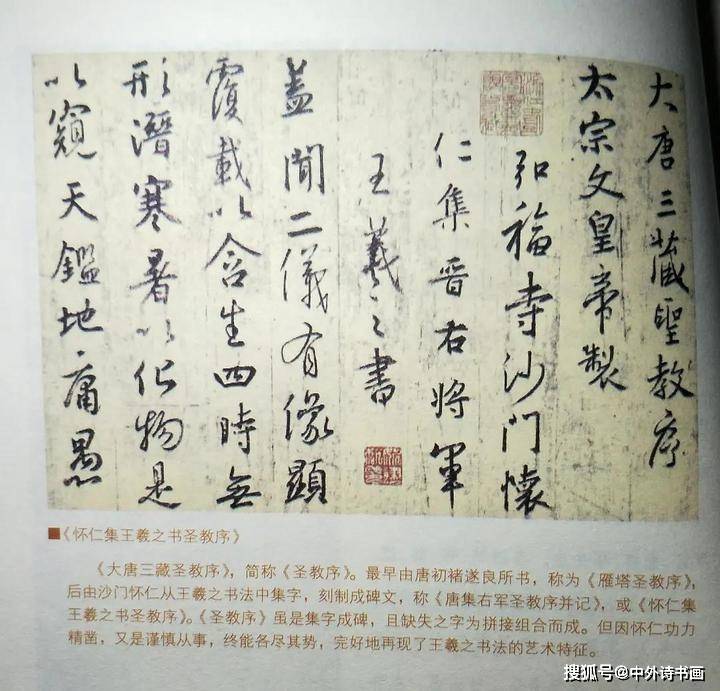 大唐三藏聖教序
太宗文皇帝製
弘福寺沙門懷
仁集晉右將軍
王羲之書
蓋聞二儀有像顯
覆載以含生四時無
形潛寒暑以化物是
以窺天鑑地庸愚
■《怀仁集王羲之书圣教序》
《大唐三藏圣教序》，简称《圣教序》。最早由唐初褚遂良所书，称为《雁塔圣教序》，
后由沙门怀仁从王羲之书法中集字，刻制成碑文，称《唐集右军圣教序并记》，或《怀仁集
王羲之书圣教序》。《圣教序》虽是集字成碑，且缺失之字为拼接组合而成。但因怀仁功力
精凿，又是谨慎从事，终能各尽其势，完好地再现了王羲之书法的艺术特征。
搜狐号@中外诗书画